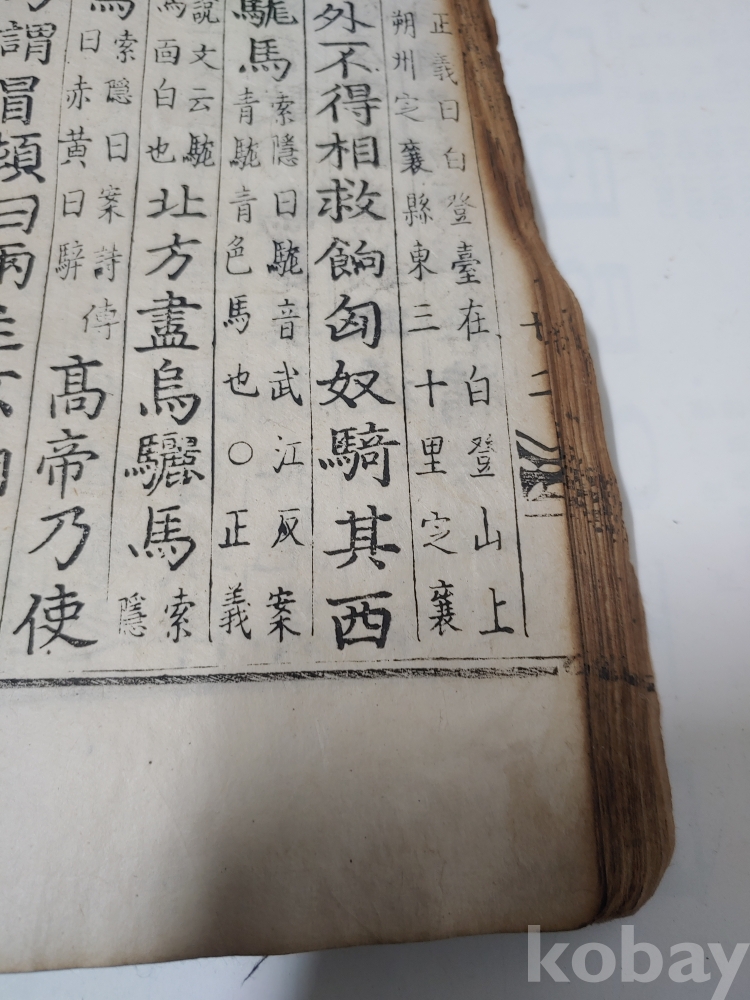 十二
正義曰白登臺在白登山上
朔州㝎襄縣東三十里㝎襄
外不得相救餉匈奴騎其西
駹馬
索隱曰駹音武江反案
青駹青色馬也○正義
說文云駹
馬面白也
北方盡烏驪馬
索
隱
馬
索隱曰案詩傳
曰赤黃曰騂
高帝乃使
謂冒頓曰兩主
kobay